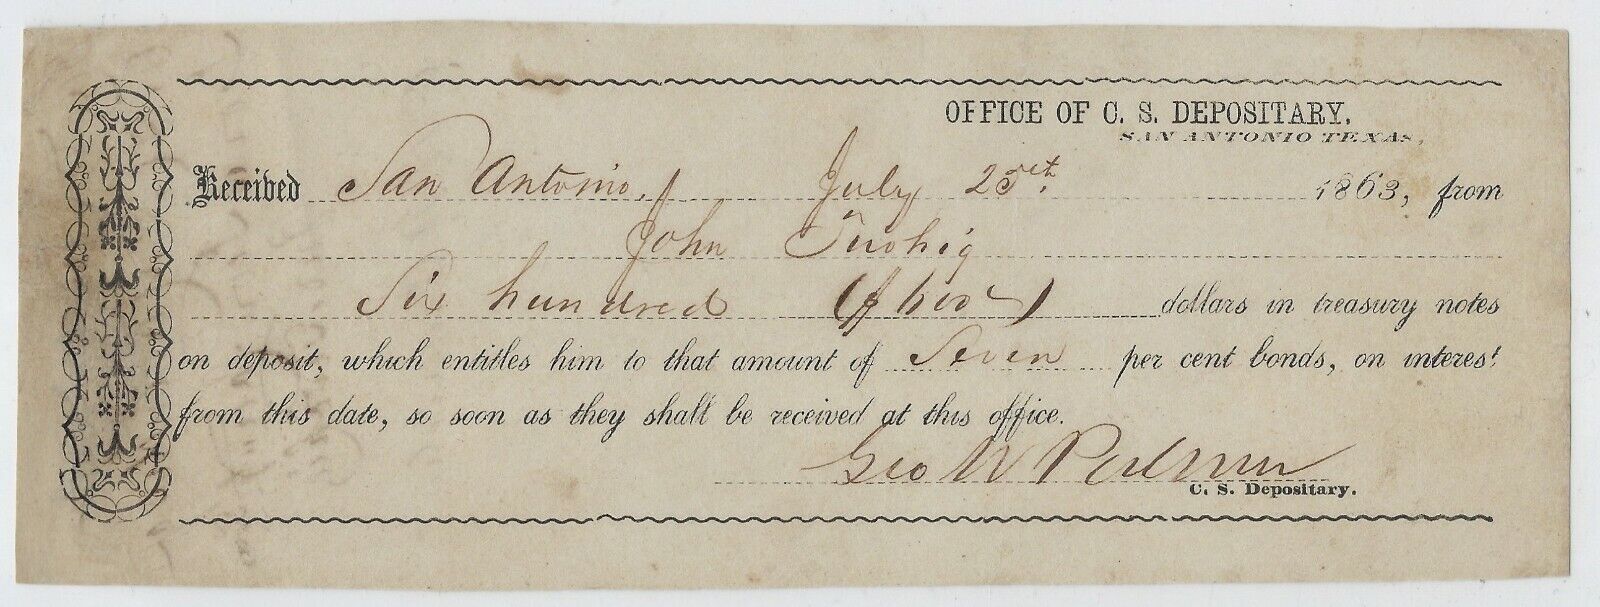 OFFICE OF C. S. DEPOSITARY.
SAN ANTONIO TEXAS,
Received San Antonio, July 1863, from
John Twohig
Six hundred ($600) dollars in treasury notes
on deposit, which entitles him to that amount of Seven per cent bonds, on interest
from this date, so soon as they shall be received at this office.
Geo W Palmer
C. S. Depositary.